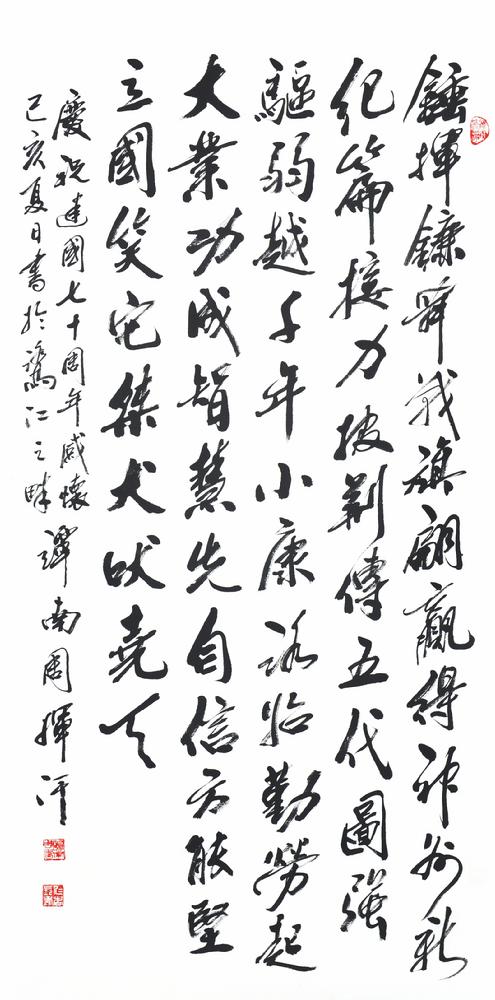 錘揮鐮舞戰旗翩贏得神州新
紀篇接力披荆傳五代圖強
驅弱越千年小康路始勤勞起
大業功成智慧先自信方能堅
立國笑它桀犬吠堯天
慶祝建國七十周年感懷
己亥夏日書於鷺江之畔譚南周揮汗